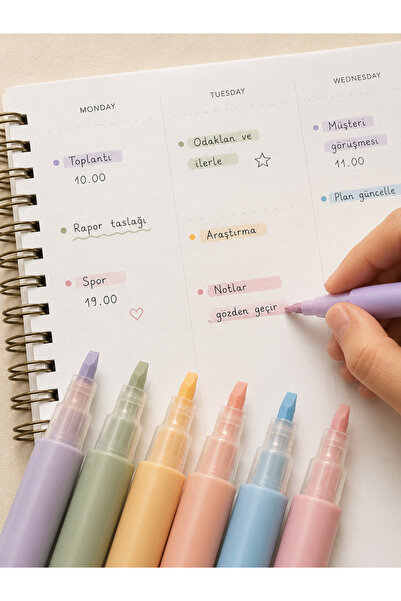 MONDAY
Toplantı
10.00
Rapor taslağı
Spor
19.00
TUESDAY
Odaklan ve
ilerle
Araştırma
Notlar
gözden geçir
WEDNESDAY
Müşteri
görüşmesi
11.00
Plan güncelle